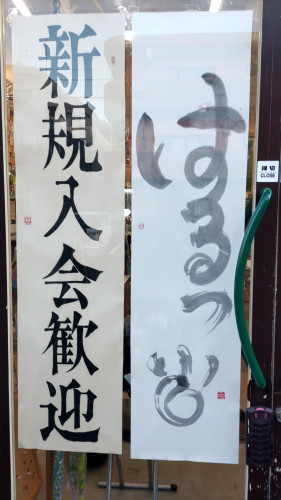 はるっ
新規入会歓迎
締切
CLOSE